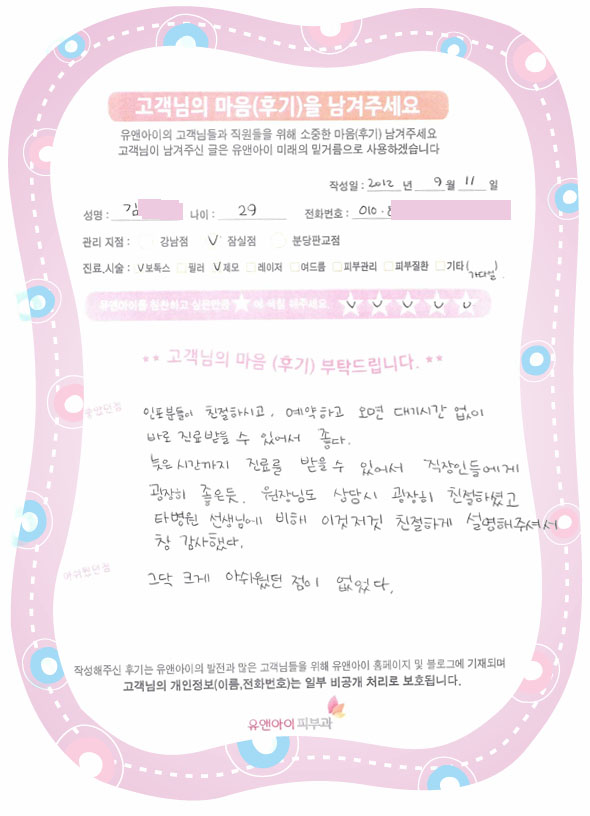 고객님의 마음(후기)을 남겨주세요
유앤아이의 고객님들과 직원들을 위해 소중한 마음(후기) 남겨주세요
고객님이 남겨주신 글은 유앤아이 미래의 밑거름으로 사용하겠습니다
작성일 : 2012 년 9 월 11 일
성명 : 김 나이 : 29 전화번호 : 010 -
관리 지점 : 강남점 V 잠실점 분당판교점
진료,시술 : V 보톡스 필러 V 제모 레이저 여드름 피부관리 피부질환 기타 ( )
유앤아이를 칭찬하고 싶은만큼 ★ 에 색칠 해주세요
** 고객님의 마음 (후기) 부탁드립니다. **
좋았던점
인포분들이 친절하시고, 예약하고 오면 대기시간 없이
바로 진료받을 수 있어서 좋다.
늦은시간까지 진료를 받을 수 있어서 직장인들에게
굉장히 좋은듯. 원장님도 상담시 굉장히 친절하셨고
타병원 선생님에 비해 이것저것 친절하게 설명해주셔서
참 감사했다.
아쉬웠던점
그닥 크게 아쉬웠던 점이 없었다.
작성해주신 후기는 유앤아이의 발전과 많은 고객님들을 위해 유앤아이 홈페이지 및 블로그에 기재되며
고객님의 개인정보(이름,전화번호)는 일부 비공개 처리로 보호됩니다.
유앤아이피부과